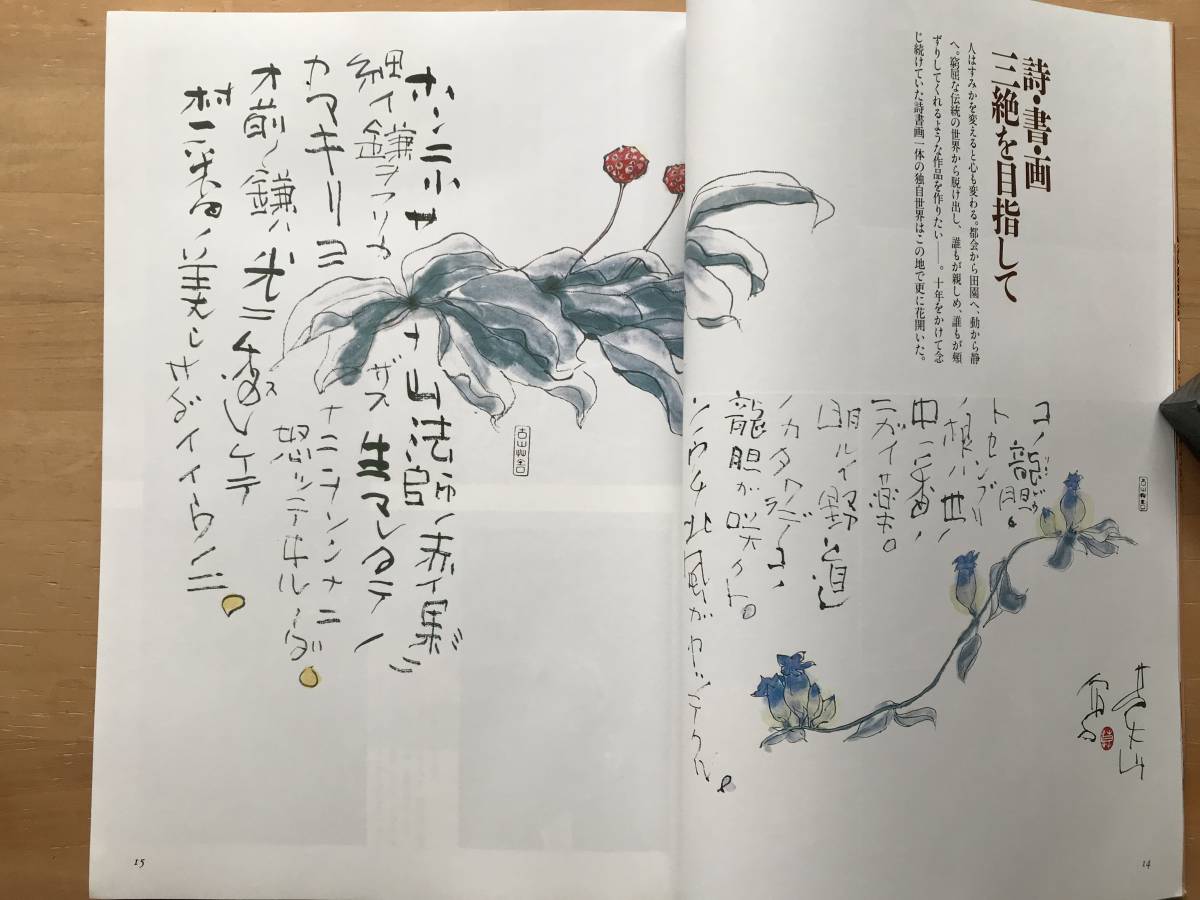 詩・書・画
三絶を目指して
人はすみかを変えると心も変わる。都会から田園へ、動から静
へ。窮屈な伝統の世界から脱け出し、誰もが親しめ、誰もが頰
ずりしてくれるような作品を作りたい——。十年をかけて念
じ続けていた詩書画一体の独自世界はこの地で更に花開いた。
コノ龍胆。
りんどう
トセンブリ
ノ根ハ世ノ
中デ一番ノ
ニガイ薬。
明ルイ野道
ノカタワラデコノ
龍胆が咲クト。
ソウチ北風がヤッテクル。
14
ホンニ小サナ山法師ノ赤イ果ニ
細イ鎌ヲフリカザス生マレタテノ
カマキリヨナニヲソンナニ
オ前ノ鎌ハ光ニ透ケテ
怒ッテヰルノダ。
村一番ノ美シサダイイウノニ。
15